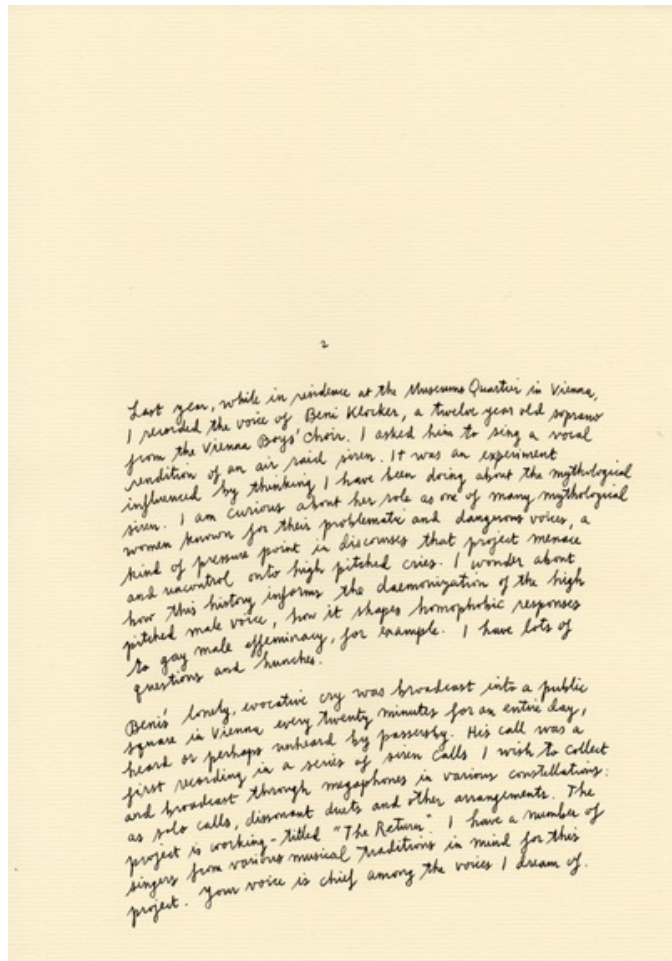 2
Last year, while in residence at the Museums Quartier in Vienna,
I recorded the voice of Beni Klocker, a twelve year old soprano
from the Vienna Boys' Choir. I asked him to sing a vocal
rendition of an air raid siren. It was an experiment
influenced by thinking I have been doing about the mythological
siren. I am curious about her role as one of many mythological
women known for their problematic and dangerous voices, a
kind of pressure point in discourses that project menace
and uncontrol onto high pitched cries. I wonder about
how this history informs the daemonization of the high
pitched male voice, how it shapes homophobic responses
to gay male effeminacy, for example. I have lots of
questions and hunches.
Beni's lonely, evocative cry was broadcast into a public
square in Vienna every twenty minutes for an entire day,
heard or perhaps unheard by passersby. His call was a
first recording in a series of siren calls I wish to collect
and broadcast through megaphones in various constellations:
as solo calls, dissonant duets and other arrangements. The
project is working-titled "The Return". I have a number of
singers from various musical traditions in mind for this
project. Your voice is chief among the voices I dream of.